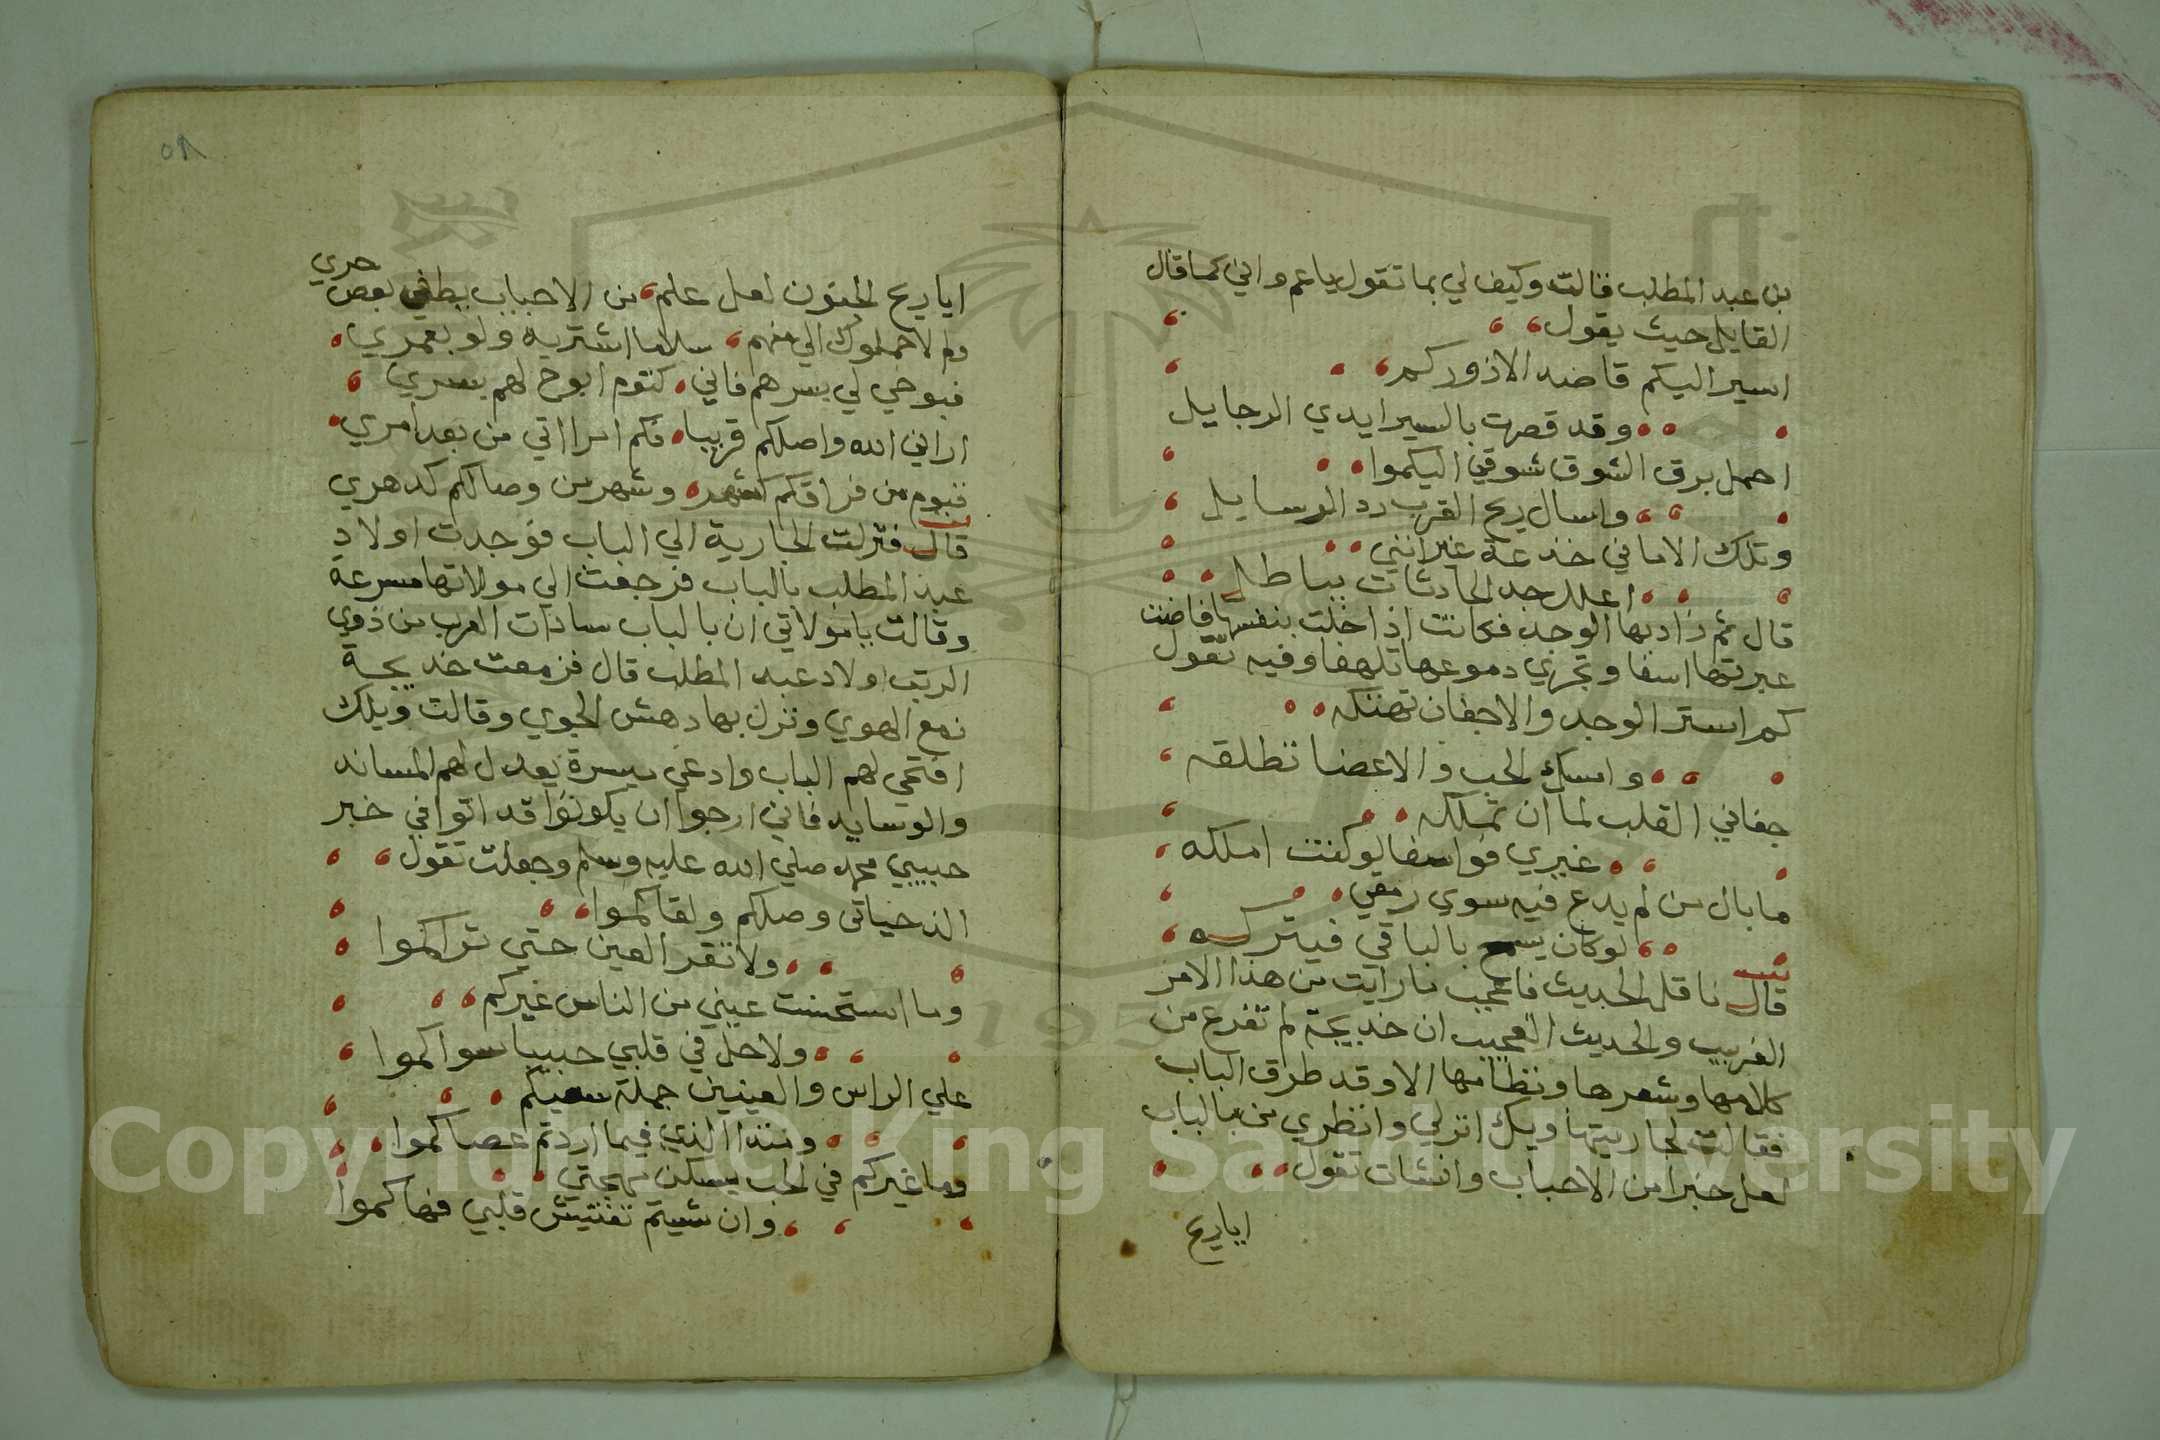 بن عبد المطلب فقالت وكيف لي بما تقول يا عم واني كما قال
القايل حيث يقول
اسير اليكم قاصد الازوركم
وقد قصرت بالسير ايدي الرحايل
احمل برق الشوق شوقي اليكموا
واسال ريح القرب رد الرسايل
وتلك الاماني خدعة غير انني
اعلل جد الحادثات بباطل
قال ثم زاد بها الوجد فكانت اذا خلت بنفسها فاضت
عبرتها اسفا وتجري دموعها تلهفا وفيه تقول
كم استر الوجد والاجفان تهتكه
وامسك الحب والاعضا تطلقه
جفاني القلب لما ان تملكه
غيري فواسفا لو كنت املكه
ما بال من لم يدع فيه سوي رمقي
لو كان يسمح بالباقي فيتركه
قال ناقل الحديث فاعجب ما رايت من هذا الامر
الغريب والحديث العجيب ان خديجة لم تفرغ من
كلامها وشعرها ونظامها الا وقد طرق الباب
فقالت لجاريتها ويك انزلي وانظري من بالباب
لعل خبرا من الاحباب وانشات تقول
ايا ريح
٥٨
ايا ريح الجنون لعل علم من الاحباب يطفي بعض حري
ولم لا حملوك الي منهم سلاما اشتريه ولو بعمري
فبوحي لي بسرهم فاني كتوم ابوح لهم بسري
اراني الله واصلكم قريبا فكم اتي من بعد امري
فيوم من فراقكم كشهر وشهر من وصالكم كدهري
قال فنزلت الجارية الي الباب فوجدت اولاد
عبد المطلب بالباب فرجعت الي مولاتها مسرعة
وقالت يا مولاتي ان بالباب سادات العرب من ذوي
الرتب اولاد عبد المطلب قال فزمعت خديجة
نمع الهوي ونزل بها دهش الجوي وقالت ويلك
افتحي لهم الباب وادعي ميسرة يعدل لهم المساند
والوسايد فاني ارجوا ان يكونوا قد اتوا في خبر
حبيبي محمد صلي الله عليه وسلم وجعلت تقول
الذ حياتي وصلكم ولقاكموا
ولا تقر العين حتي تراكموا
وما استحسنت عيني من الناس غيركم
ولا حل في قلبي حبيبا سواكموا
علي الراس والعينين جملة سعيكم
الذي فيما اردتم عصاكموا
وما غيركم في الحب يسكن مهجتي
وان شيتم تفتيش قلبي فهاكموا
Copyright © King Saud University
1957